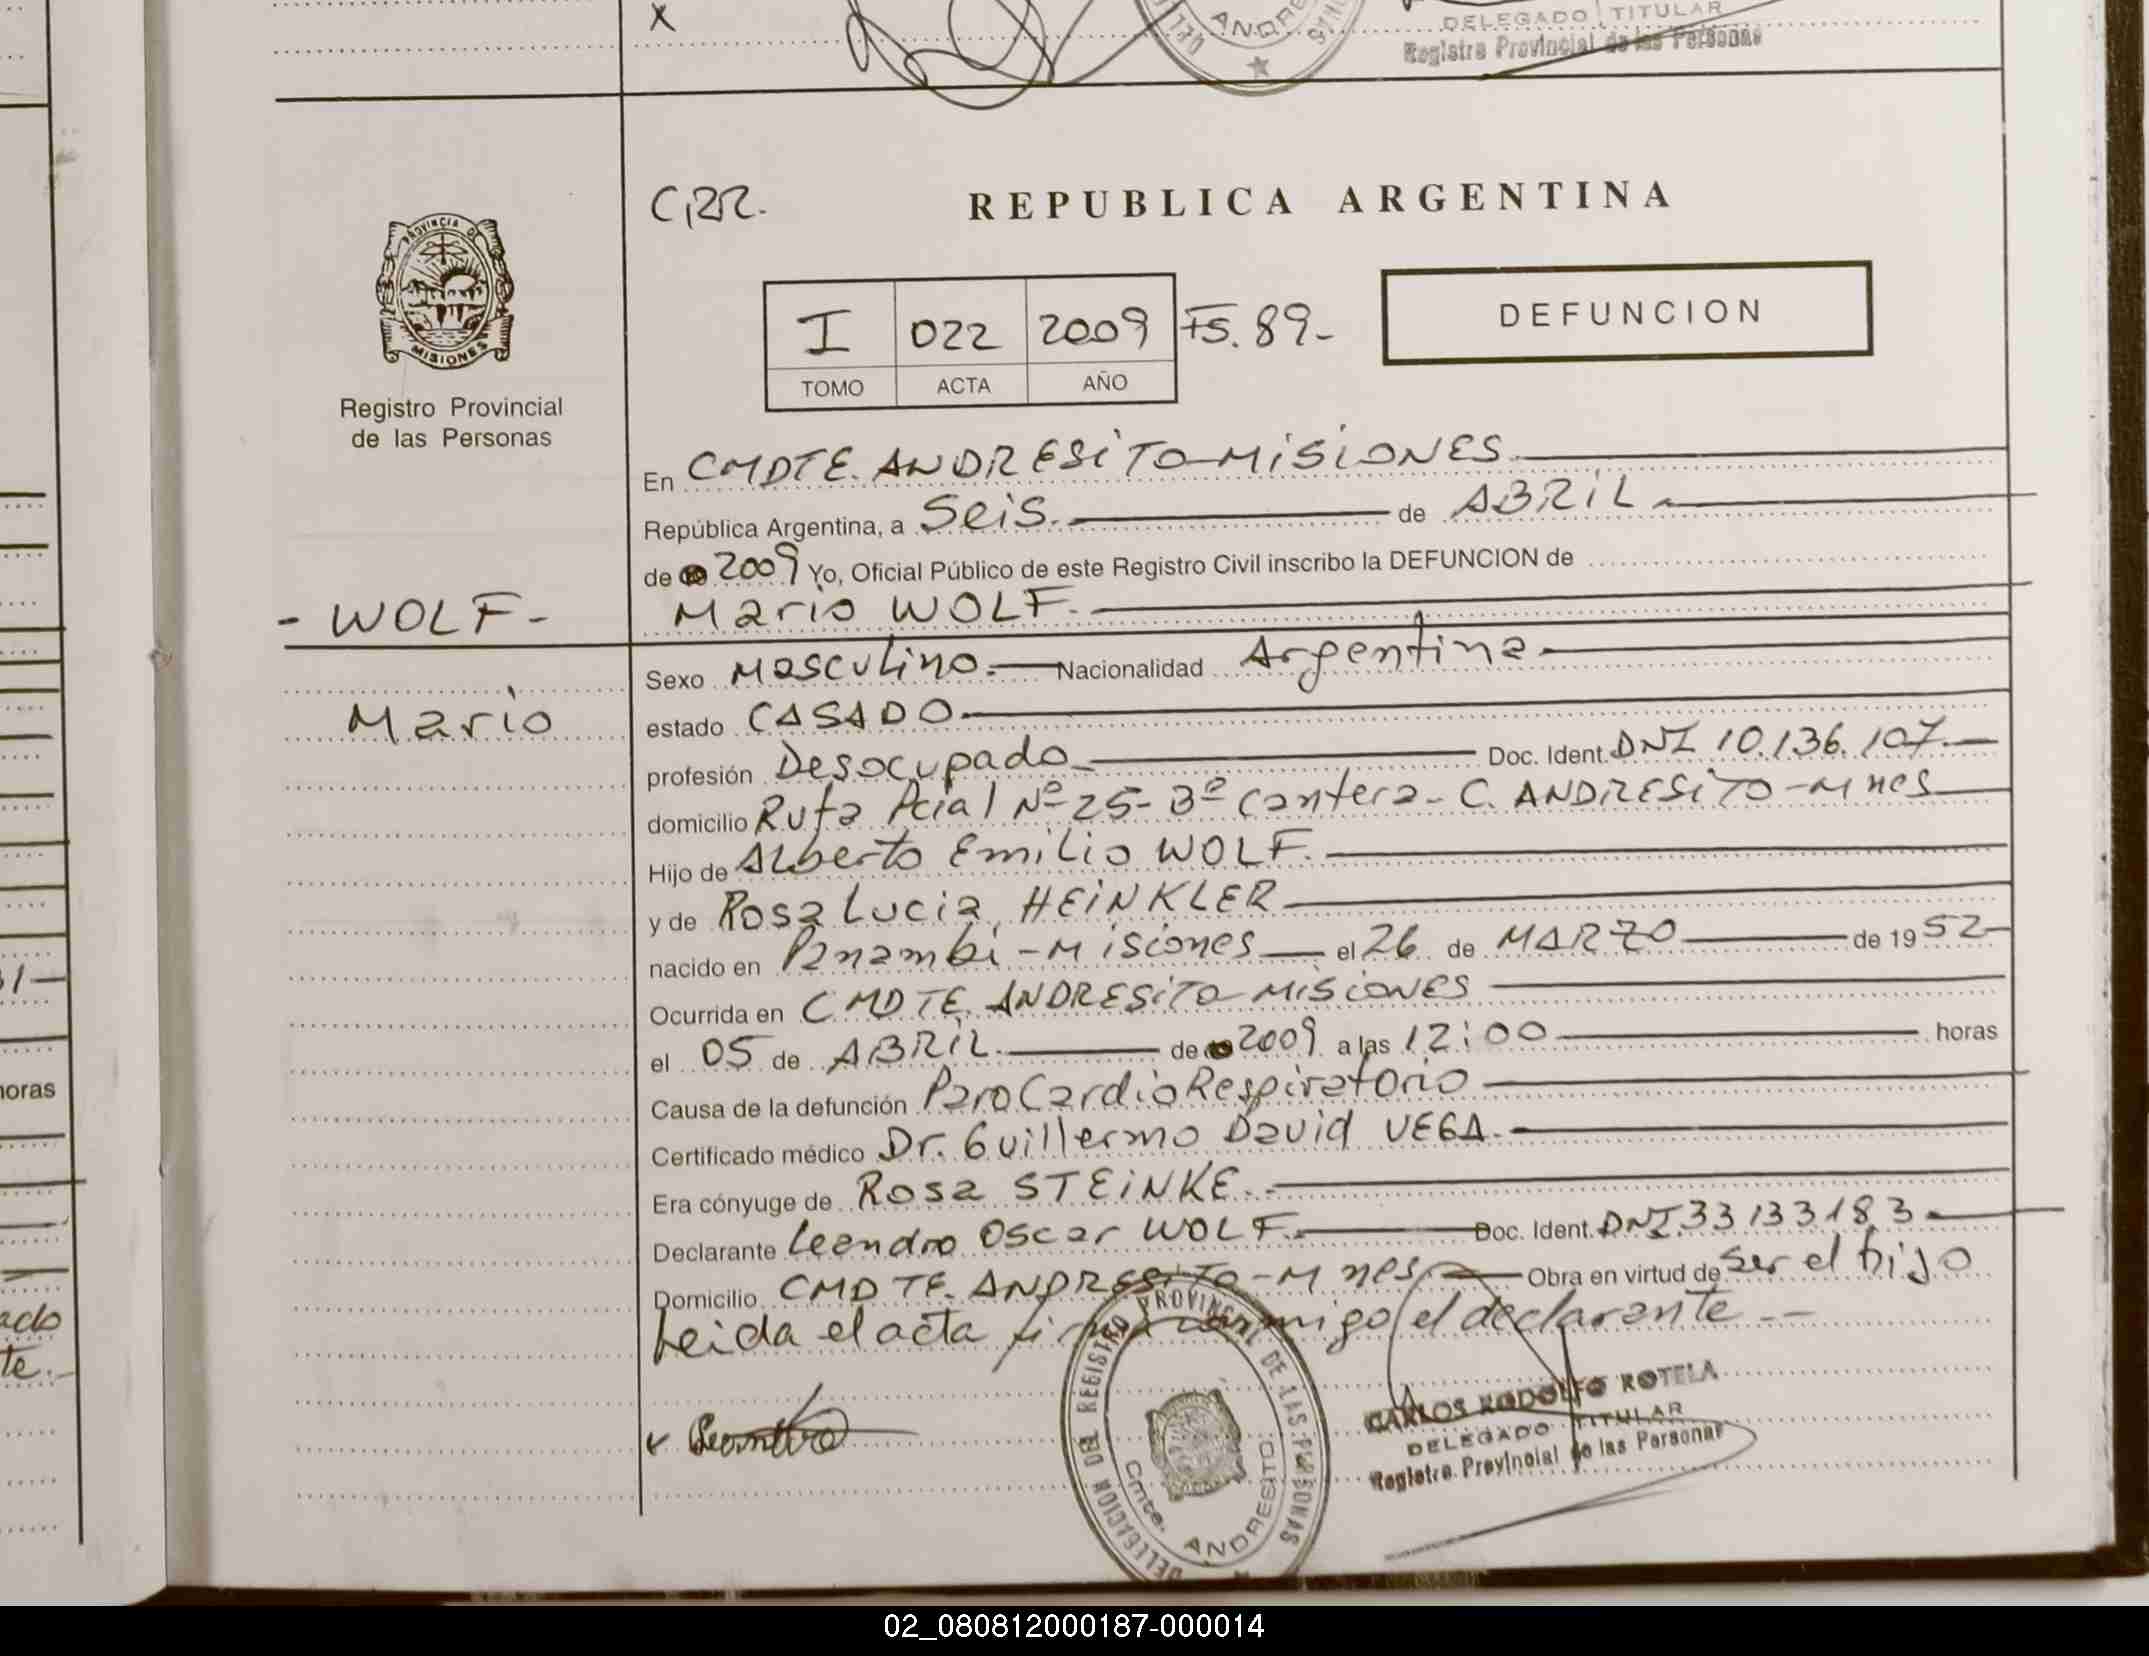 X
ANDRE
DELEGADO TITULAR
Registro Provincial de las Personas
C,RR.
REPUBLICA ARGENTINA
PROVINCIA D
MISIONES
I 022 2009 FS. 89-
TOMO ACTA AÑO
DEFUNCION
Registro Provincial
de las Personas
En CMDTE. ANDRESITO-MISIONES
República Argentina, a Seis. de ABRIL
de 2009 Yo, Oficial Público de este Registro Civil inscribo la DEFUNCION de
- WOLF -
Mario WOLF.
Sexo Masculino. Nacionalidad Argentina
Mario
estado CASADO
profesión Desocupado Doc. Ident. DNI 10.136.107.
domicilio Ruta Pcial Nº 25- 3º Cantera- C. ANDRESITO-Mnes
Hijo de Alberto Emilio WOLF.
y de Rosa Lucia HEINKLER
nacido en Panambi - Misiones el 26 de MARZO de 19 52
Ocurrida en CMDTE. ANDRESITO-MISIONES
el 05 de ABRIL. de 2009 a las 12:00 horas
Causa de la defunción Paro CardioRespiratorio
Certificado médico Dr. Guillermo David VEGA.
Era cónyuge de Rosa STEINKE.
Declarante Leandro Oscar WOLF. Doc. Ident. DNI.33133183
Domicilio CMDTE. ANDRESITO-Mnes Obra en virtud de ser el hijo
Leida el acta firma conmigo el declarante.-
DELEGACION DEL REGISTRO PROVINCIAL DE LAS PERSONAS
Cmte. ANDRESITO
CARLOS RODOLFO ROTELA
DELEGADO TITULAR
Registro Provincial de las Personas
31
horas
ado
te.
02_080812000187-000014